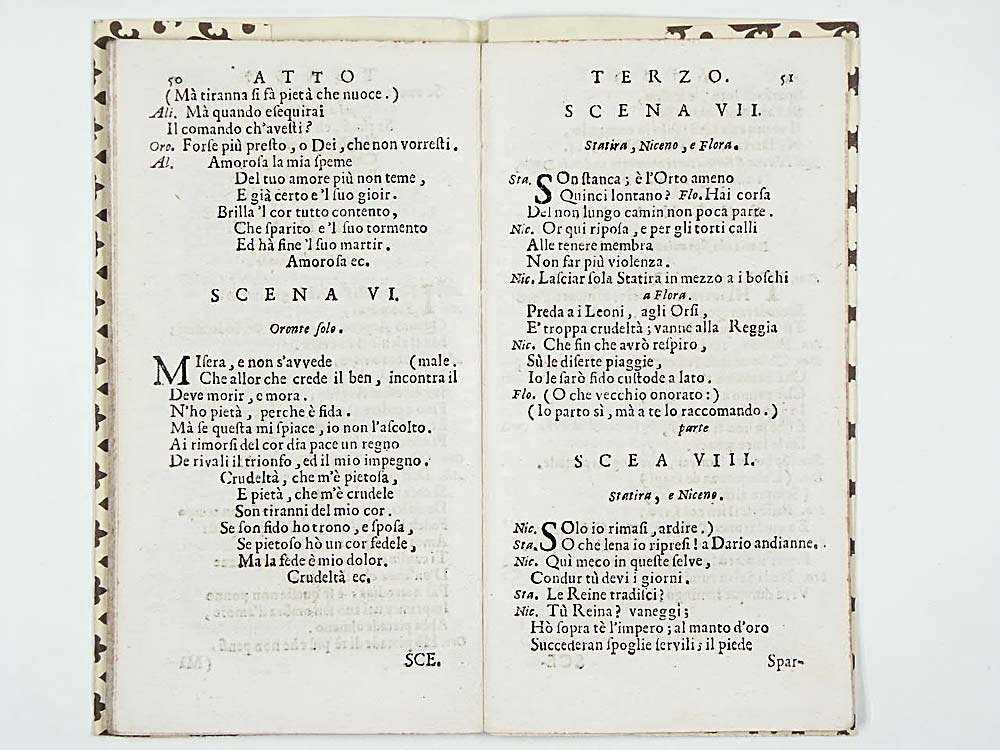 50 ATTO
(Mà tiranna ſi fà pietà che nuoce.)
Ali. Mà quando eſequirai
Il comando ch'aveſti?
Oro. Forſe più preſto, o Dei, che non vorreſti.
Al. Amoroſa la mia ſpeme
Del tuo amore più non teme,
E già certo e'l ſuo gioir.
Brilla 'l cor tutto contento,
Che ſparito e 'l ſuo tormento
Ed hà fine 'l ſuo martir.
Amoroſa ec.
SCENA VI.
Oronte ſolo.
MIſera, e non s'avvede (male.
Che allor che crede il ben, incontra il
Deve morir, e mora.
N'ho pietà, perche è fida.
Mà ſe queſta mi ſpiace, io non l'aſcolto.
Ai rimorſi del cor dia pace un regno
De rivali il trionfo, ed il mio impegno.
Crudeltà, che m'è pietoſa,
E pietà, che m'è crudele
Son tiranni del mio cor.
Se ſon fido ho trono, e ſpoſa,
Se pietoſo hò un cor fedele,
Ma la fede è mio dolor.
Crudeltà ec.
SCE.
TERZO. 51
SCENA VII.
Statira, Niceno, e Flora.
Sta. SOn ſtanca; è l'Orto ameno
Quinci lontano? Flo. Hai corſa
Del non lungo camin non poca parte.
Nic. Or qui ripoſa, e per gli torti calli
Alle tenere membra
Non far più violenza.
Nic. Laſciar ſola Statira in mezzo a i boſchi
a Flora.
Preda a i Leoni, agli Orſi,
E' troppa crudeltà; vanne alla Reggia
Nic. Che fin che avrò reſpiro,
Sù le diſerte piaggie,
Io le ſarò fido cuſtode a lato.
Flo. (O che vecchio onorato:)
(Io parto sì, mà a te lo raccomando.)
parte
SCEA VIII.
Statira, e Niceno.
Nic. SOlo io rimaſi, ardire.)
Sta. O che lena io ripreſi! a Dario andianne.
Nic. Quì meco in queſte ſelve,
Condur tù devi i giorni.
Sta. Le Reine tradiſci?
Nic. Tù Reina? vaneggi;
Hò ſopra tè l'impero; al manto d'oro
Succederan ſpoglie ſervili; il piede
Spar-